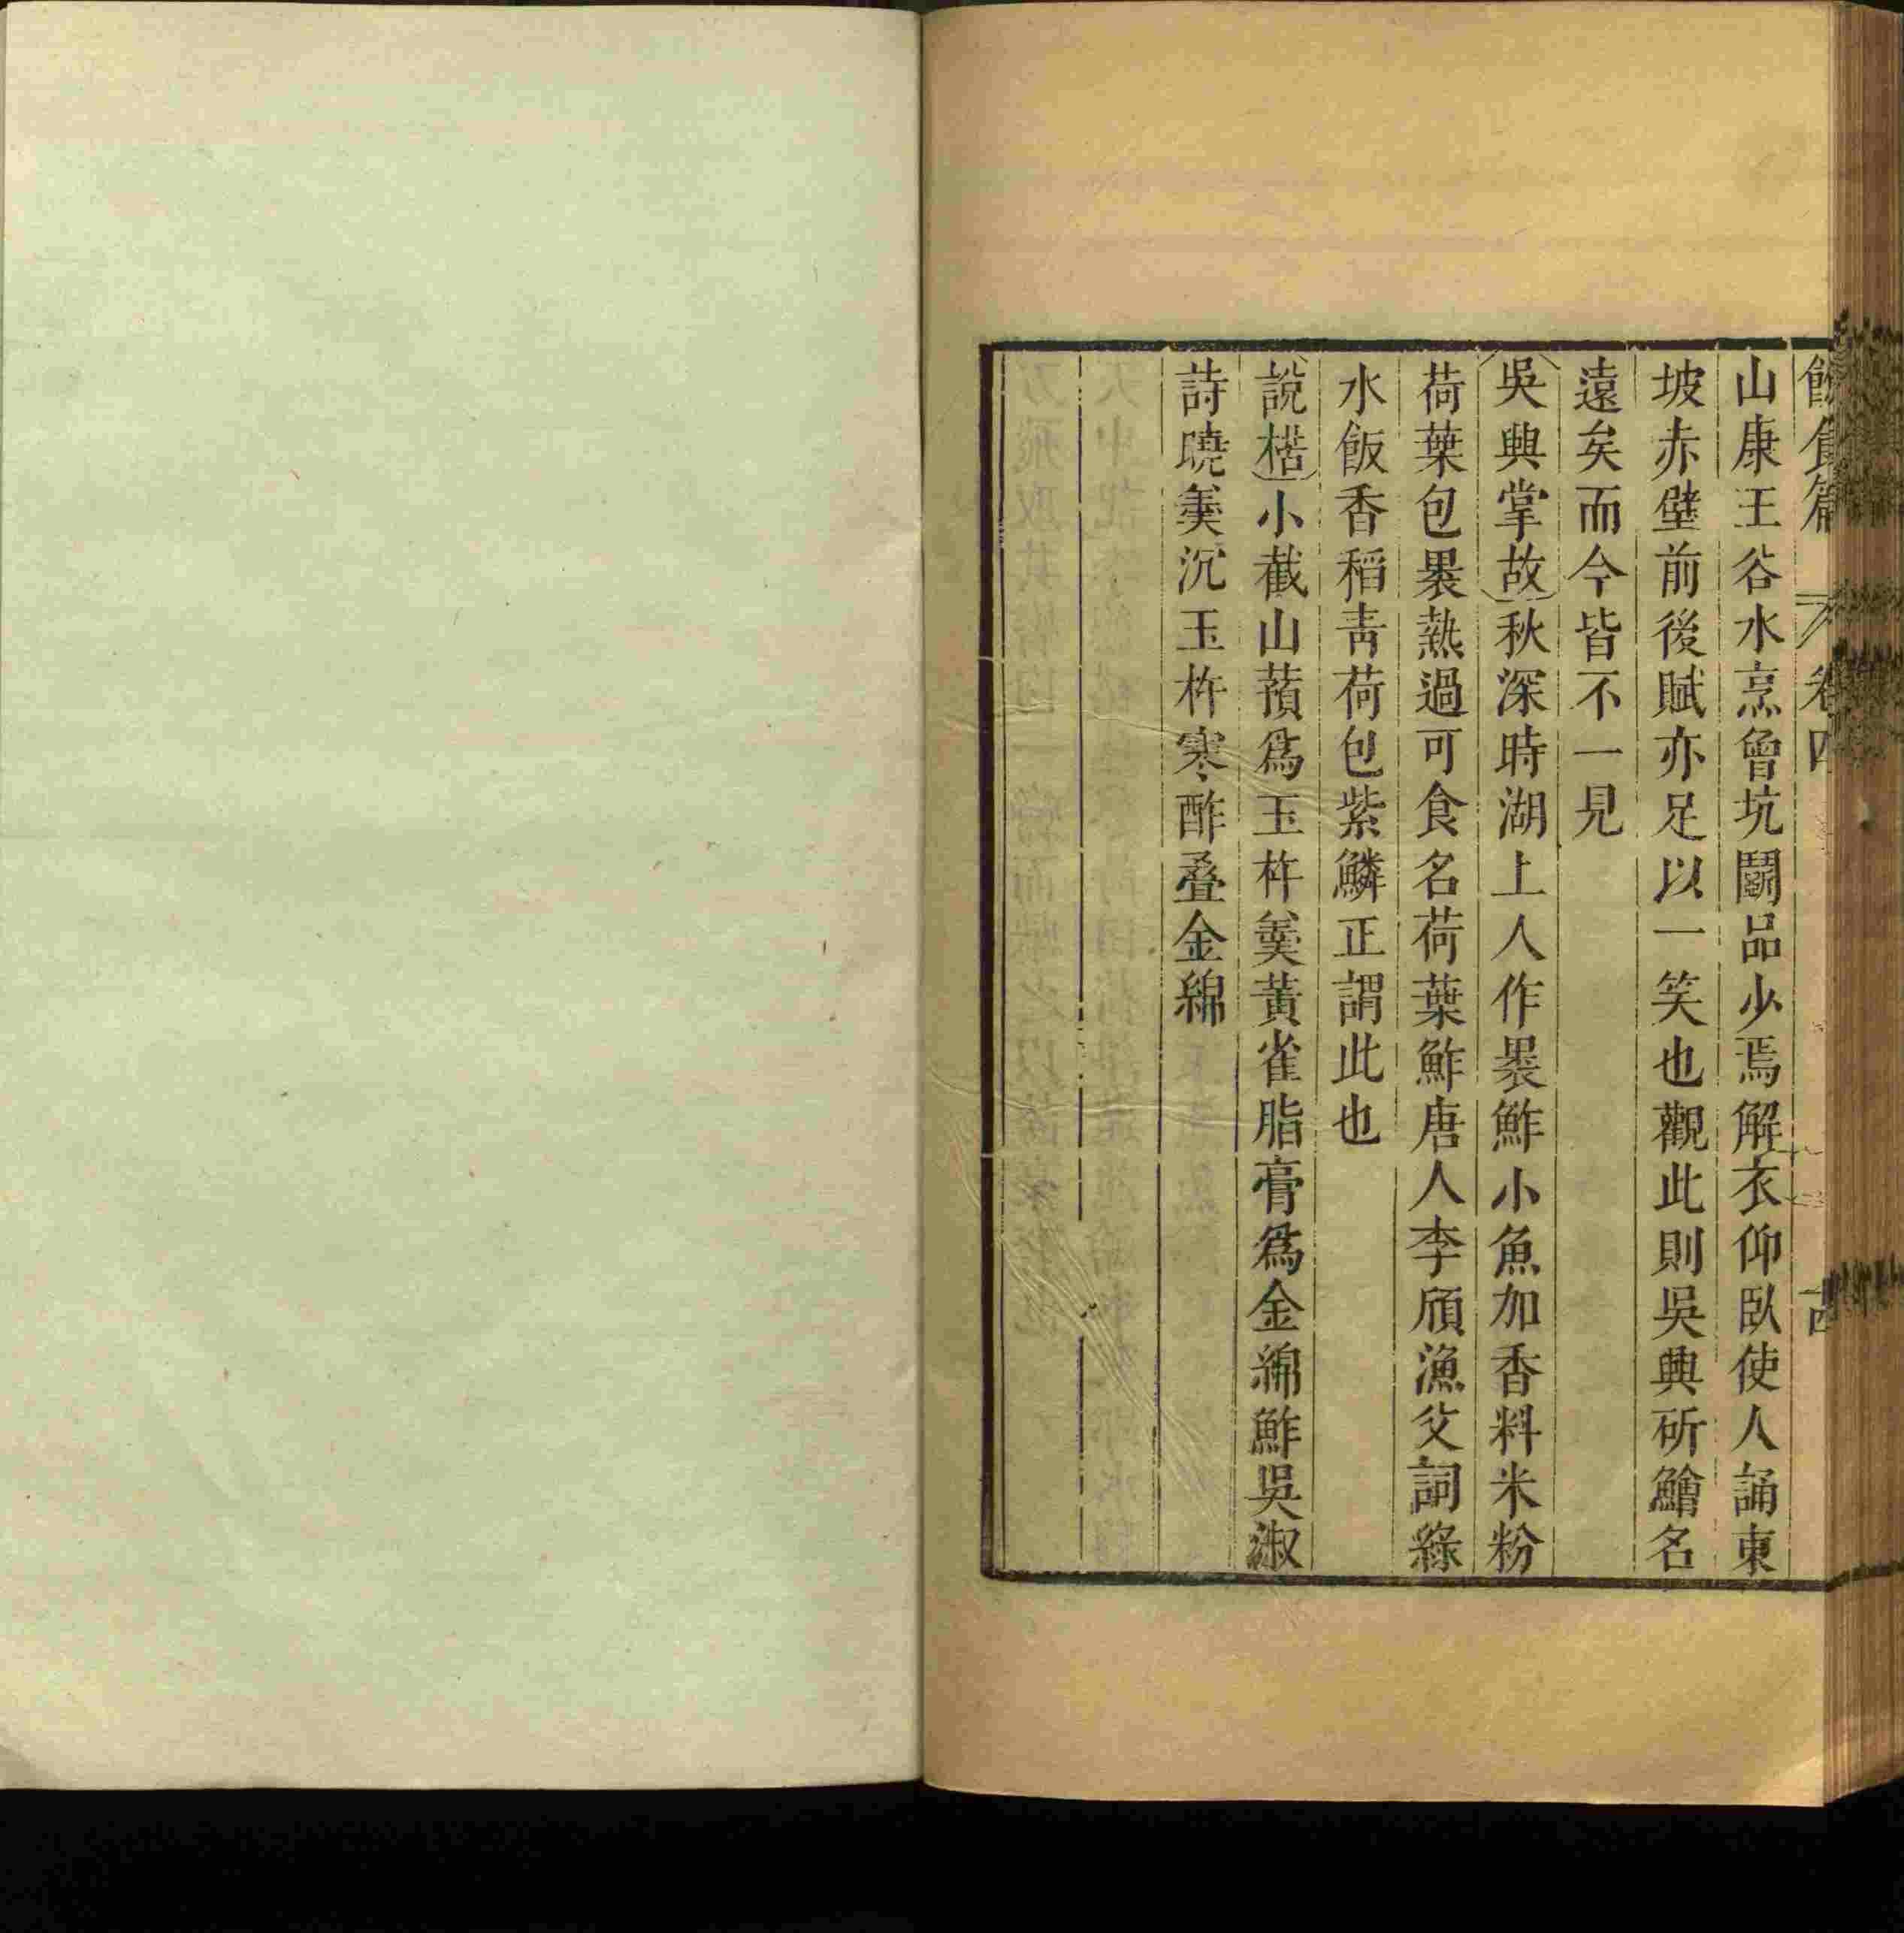 飮食篇 卷四 十四
山康王谷水烹曾坑鬭品少焉解衣仰臥使人誦東
坡赤壁前後賦亦足以一笑也觀此則吳興斫鱠名
遠矣而今皆不一見
吳興掌故秋深時湖上人作褁鮓小魚加香料米粉
荷葉包褁熱過可食名荷葉鮓唐人李頎漁父詞綠
水飯香稻靑荷包紫鱗正謂此也
說楛小截山蕷爲玉杵羹黃雀脂膏爲金綿鮓吳淑
詩曉羹沉玉杵寒酢叠金綿